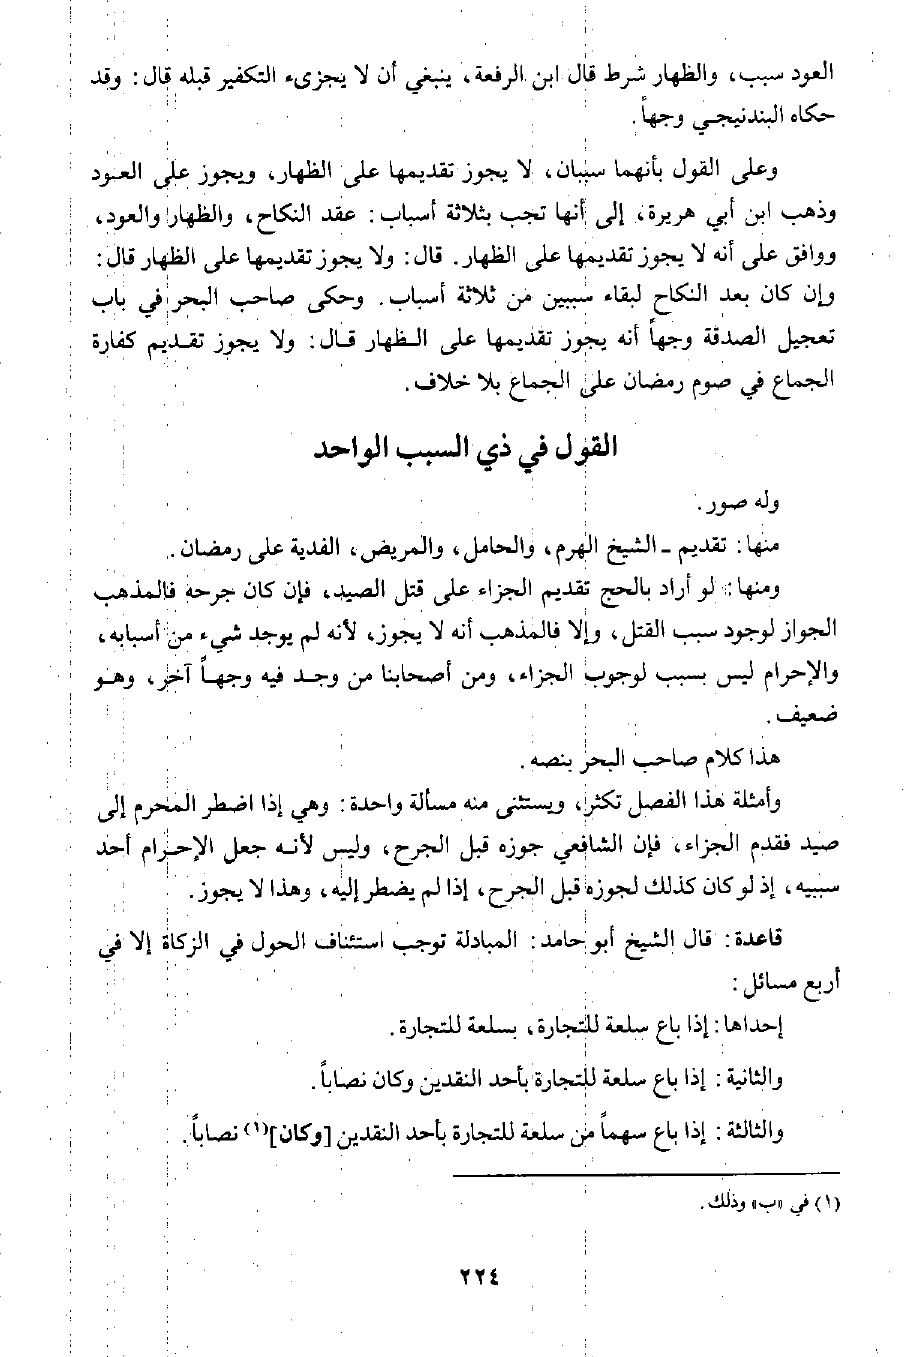 العود سبب، والظهار شرط قال ابن الرفعة، ينبغي أن لا يجزىء التكفير قبله قال: وقد
حكاه البندنيجي وجهاً.
وعلى القول بأنهما سببان، لا يجوز تقديمها على الظهار، ويجوز على العود
وذهب ابن أبي هريرة، إلى أنها تجب بثلاثة أسباب: عقد النكاح، والظهار والعود،
ووافق على أنه لا يجوز تقديمها على الظهار. قال: ولا يجوز تقديمها على الظهار قال:
وإن كان بعد النكاح لبقاء سببين من ثلاثة أسباب. وحكى صاحب البحر في باب
تعجيل الصدقة وجهاً أنه يجوز تقديمها على الظهار قال: ولا يجوز تقديم كفارة
الجماع في صوم رمضان على الجماع بلا خلاف.
القول في ذي السبب الواحد
وله صور.
منها: تقديم ـ الشيخ الهرم، والحامل، والمريض، الفدية على رمضان.
ومنها: لو أراد بالحج تقديم الجزاء على قتل الصيد، فإن كان جرحه فالمذهب
الجواز لوجود سبب القتل، وإلا فالمذهب أنه لا يجوز، لأنه لم يوجد شيء من أسبابه،
والإحرام ليس بسبب لوجوب الجزاء، ومن أصحابنا من وجد فيه وجهاً آخر، وهو
ضعيف.
هذا كلام صاحب البحر بنصه.
وأمثلة هذا الفصل تكثر، ويستثنى منه مسألة واحدة: وهي إذا اضطر المحرم إلى
صيد فقدم الجزاء، فإن الشافعي جوزه قبل الجرح، وليس لأنه جعل الإحرام أحد
سببيه، إذ لو كان كذلك لجوزه قبل الجرح، إذا لم يضطر إليه، وهذا لا يجوز.
قاعدة: قال الشيخ أبو حامد: المبادلة توجب استئناف الحول في الزكاة إلا في
أربع مسائل:
إحداها: إذا باع سلعة للتجارة، بسلعة للتجارة.
والثانية: إذا باع سلعة للتجارة بأحد النقدين وكان نصاباً.
والثالثة: إذا باع سهماً من سلعة للتجارة بأحد النقدين [وكان](١) نصاباً.
(١) في «ب» وذلك.
٢٢٤